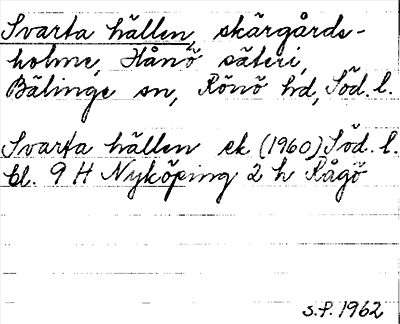 Svarta hällen, skärgårds-
holme, Hånö säteri,
Bälinge sn, Rönö hd, Söd. l.
Svarta hällen ek (1960) Söd. l.
bl. 9 H Nyköping 2 h Rågö
s.p. 1962